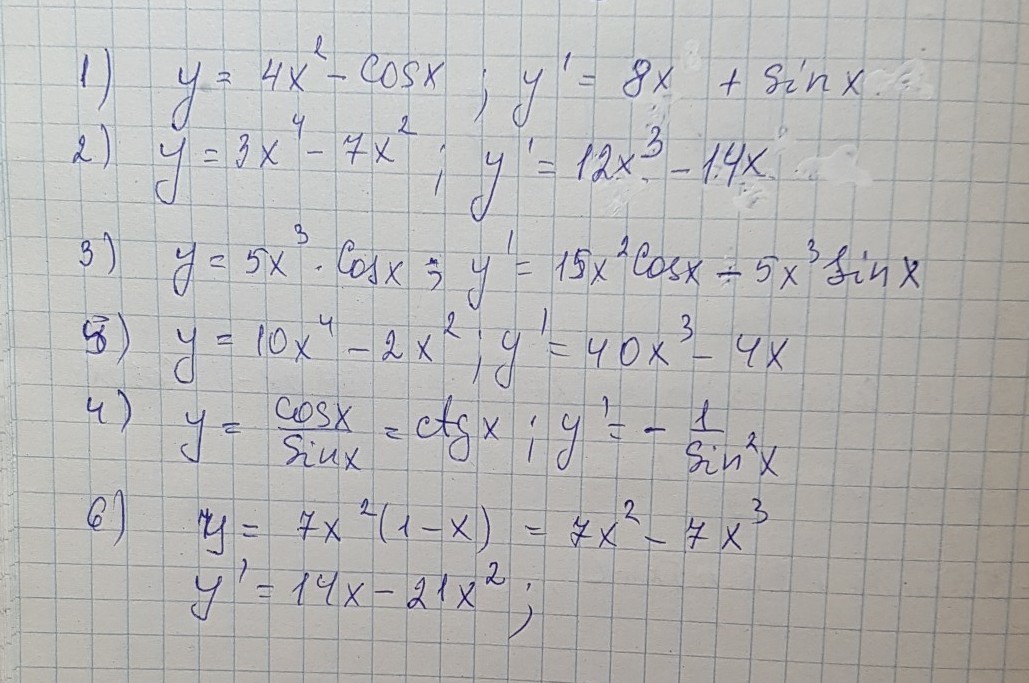 1) y = 4x² - cosx ; y' = 8x + sinx
2) y = 3x⁴ - 7x² ; y' = 12x³ - 14x
3) y = 5x³ · cosx ; y' = 15x²cosx - 5x³sinx
5) y = 10x⁴ - 2x² ; y' = 40x³ - 4x
4) y = cosx/sinx = ctgx ; y' = - 1/sin²x
6) y = 7x²(1-x) = 7x² - 7x³
y' = 14x - 21x² ;